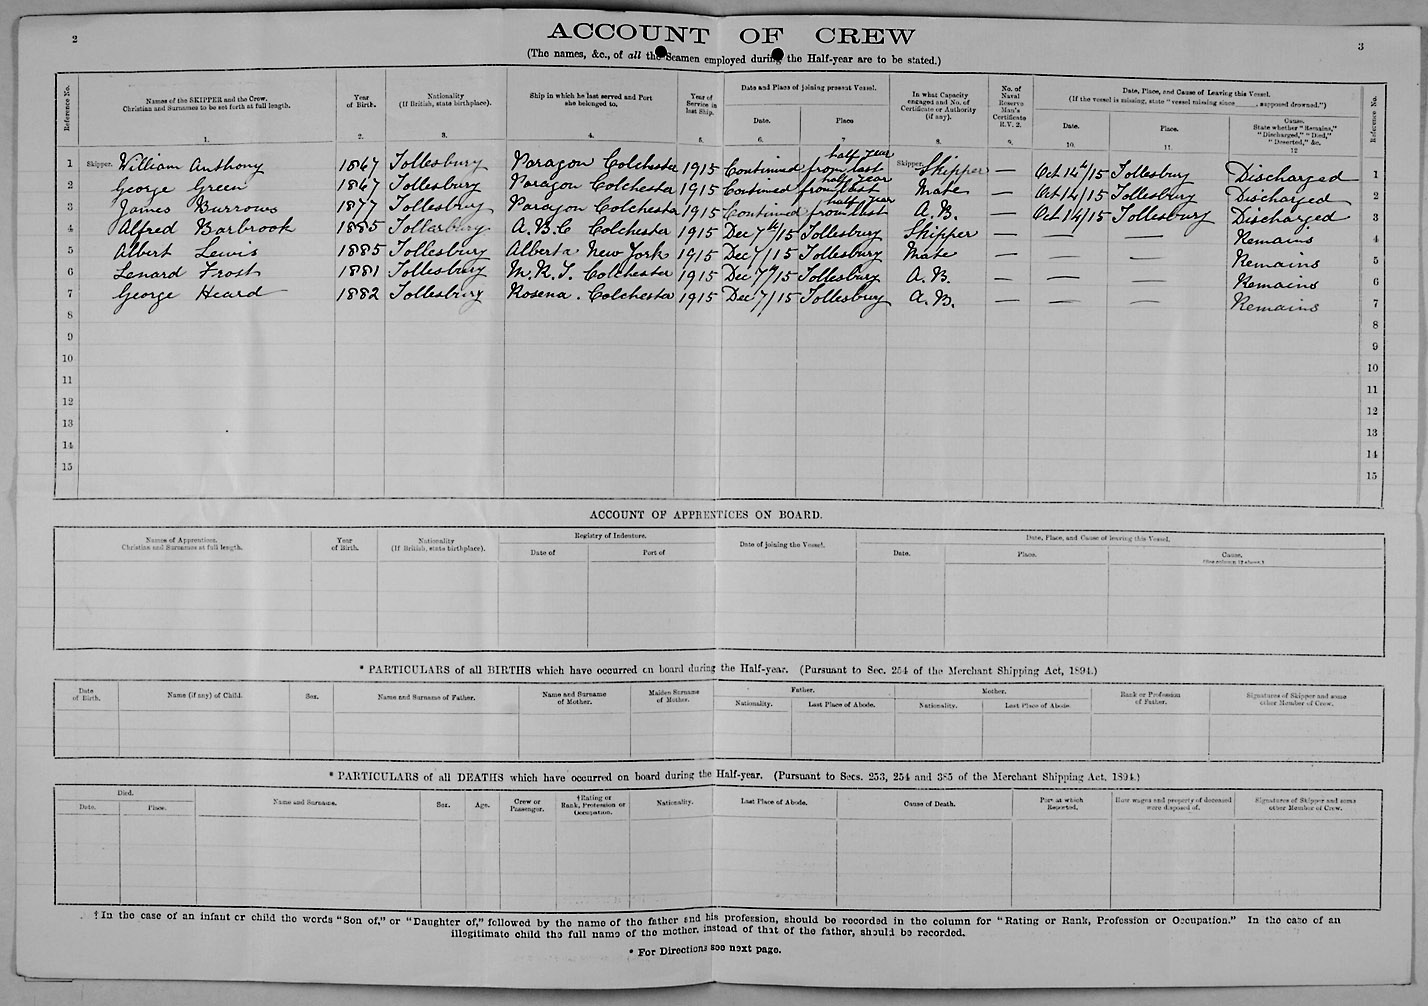 2
ACCOUNT OF CREW
3
(The names, &c., of all the Seamen employed during the Half-year are to be stated.)
Reference No.
Names of the SKIPPER and the Crew.
Christian and Surnames to be set forth at full length.
1.
Year
of Birth.
2.
Nationality
(If British, state birthplace).
3.
Ship in which he last served and Port
she belonged to.
4.
Year of
Service in
last Ship.
5.
Date and Place of joining present Vessel.
Date.
6.
Place
7
In what Capacity
engaged and No. of
Certificate or Authority
(if any).
8.
No. of
Naval
Reserve
Man's
Certificate
R.V. 2.
9.
Date, Place, and Cause of Leaving this Vessel.
(If the vessel is missing, state "vessel missing since , supposed drowned.")
Date.
10.
Place.
11.
Cause.
State whether "Remains,"
"Discharged," "Died,"
"Deserted," &c.
12
Reference No.
1 Skipper. William Anthony 1867 Tollesbury Paragon Colchester 1915 Continued from last half year Skipper. Skipper — Oct 14th/15 Tollesbury Discharged 1
2 George Green 1867 Tollesbury Paragon Colchester 1915 Continued from last half year Mate — Oct 14/15 Tollesbury Discharged 2
3 James Burrows 1877 Tollesbury Paragon Colchester 1915 Continued from last half year A.B. — Oct 14/15 Tollesbury Discharged 3
4 Alfred Barbrook 1885 Tollesbury A.B.C Colchester 1915 Dec 7th/15 Tollesbury Skipper — — — Remains 4
5 Albert Lewis 1885 Tollesbury Alberta New York 1915 Dec 7/15 Tollesbury Mate — — — Remains 5
6 Lenard Frost 1881 Tollesbury M.K.T. Colchester 1915 Dec 7th/15 Tollesbury A.B. — — — Remains 6
7 George Heard 1882 Tollesbury Rosena. Colchester 1915 Dec 7/15 Tollesbury A.B. — — — Remains 7
8 8
9 9
10 10
11 11
12 12
13 13
14 14
15 15
ACCOUNT OF APPRENTICES ON BOARD.
Names of Apprentices.
Christian and Surnames at full length.
Year
of Birth.
Nationality
(If British, state birthplace).
Registry of Indenture.
Date of
Port of
Date of joining the Vessel.
Date, Place, and Cause of leaving this Vessel.
Date.
Place.
Cause.
(See column 12 above.)
* PARTICULARS of all BIRTHS which have occurred on board during the Half-year. (Pursuant to Sec. 254 of the Merchant Shipping Act, 1894.)
Date
of Birth.
Name (if any) of Child.
Sex.
Name and Surname of Father.
Name and Surname
of Mother.
Maiden Surname
of Mother.
Father.
Nationality.
Last Place of Abode.
Mother.
Nationality.
Last Place of Abode.
Rank or Profession
of Father.
Signatures of Skipper and some
other Member of Crew.
* PARTICULARS of all DEATHS which have occurred on board during the Half-year. (Pursuant to Secs. 253, 254 and 385 of the Merchant Shipping Act, 1894.)
Died.
Date.
Place.
Name and Surname.
Sex.
Age.
Crew or
Passenger.
†Rating or
Rank, Profession or
Occupation.
Nationality.
Last Place of Abode.
Cause of Death.
Port at which
Reported.
How wages and property of deceased
were disposed of.
Signatures of Skipper and some
other Member of Crew.
† In the case of an infant or child the words "Son of," or "Daughter of," followed by the name of the father and his profession, should be recorded in the column for "Rating or Rank, Profession or Occupation." In the case of an
illegitimate child the full name of the mother, instead of that of the father, should be recorded.
* For Directions see next page.